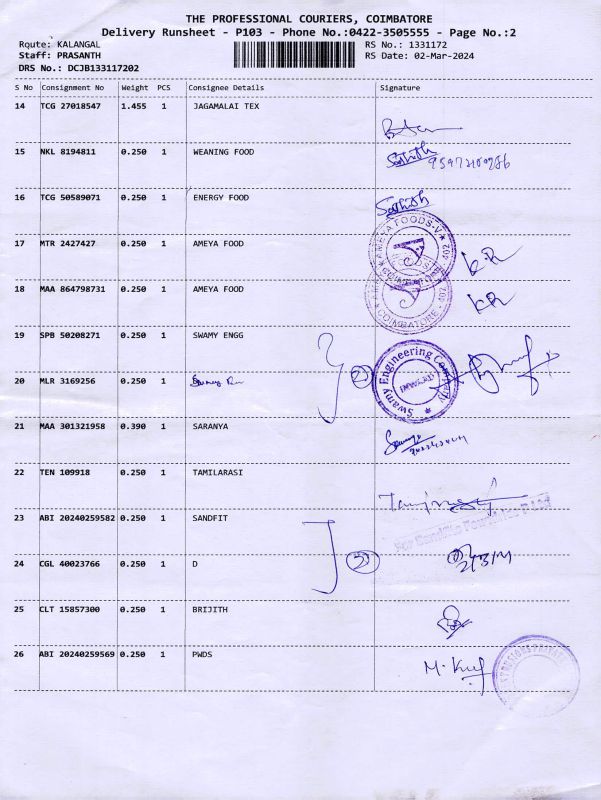 THE PROFESSIONAL COURIERS, COIMBATORE
Delivery Runsheet - P103 - Phone No.:0422-3505555 - Page No.:2
Route: KALANGAL RS No.: 1331172
Staff: PRASANTH RS Date: 02-Mar-2024
DRS No.: DCJB133117202
S No Consignment No Weight PCS Consignee Details Signature
14 TCG 27018547 1.455 1 JAGAMALAI TEX
15 NKL 8194811 0.250 1 WEANING FOOD
Sathish
16 TCG 50589071 0.250 1 ENERGY FOOD
Sathish
17 MTR 2427427 0.250 1 AMEYA FOOD
AMEYA FOODS-V
KR
18 MAA 864798731 0.250 1 AMEYA FOOD
COIMBATORE - 402
KR
19 SPB 50208271 0.250 1 SWAMY ENGG
2
Swamy Engineering Company
20 MLR 3169256 0.250 1
21 MAA 301321958 0.390 1 SARANYA
22 TEN 109918 0.250 1 TAMILARASI
23 ABI 20240259582 0.250 1 SANDFIT
2
24 CGL 40023766 0.250 1 D
25 CLT 15857300 0.250 1 BRIJITH
26 ABI 20240259569 0.250 1 PWDS